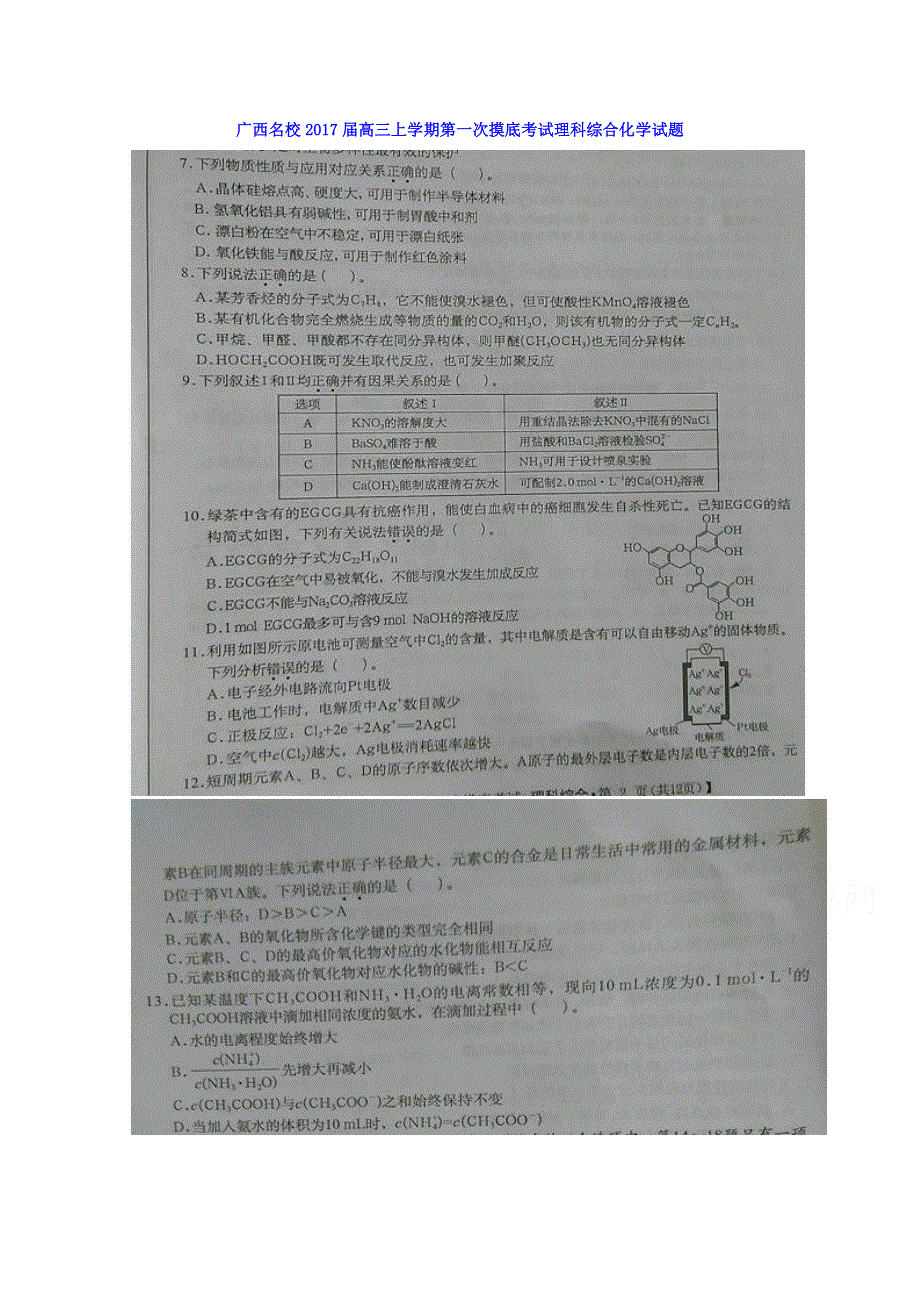 广西名校 2017 届高三上学期第一次摸底考试理科综合化学试题
7.下列物质性质与应用对应关系正确的是(  )。
A.晶体硅熔点高、硬度大,可用于制作半导体材料
B.氢氧化铝具有弱碱性,可用于制胃酸中和剂
C.漂白粉在空气中不稳定,可用于漂白纸张
D.氧化铁能与酸反应,可用于制作红色涂料
8.下列说法正确的是(  )。
A.某芳香烃的分子式为C₇H₈，它不能使溴水褪色，但可使酸性KMnO₄溶液褪色
B.某有机化合物完全燃烧生成等物质的量的CO₂和H₂O，则该有机物的分子式一定CₙH₂ₙ
C.甲烷、甲醛、甲酸都不存在同分异构体，则甲醚(CH₃OCH₃)也无同分异构体
D.HOCH₂COOH既可发生取代反应，也可发生加聚反应
9.下列叙述Ⅰ和Ⅱ均正确并有因果关系的是(  )。
选项 叙述Ⅰ 叙述Ⅱ
A KNO₃的溶解度大 用重结晶法除去KNO₃中混有的NaCl
B BaSO₄难溶于酸 用盐酸和BaCl₂溶液检验SO₄²⁻
C NH₃能使酚酞溶液变红 NH₃可用于设计喷泉实验
D Ca(OH)₂能制成澄清石灰水 可配制2.0 mol·L⁻¹的Ca(OH)₂溶液
10.绿茶中含有的EGCG具有抗癌作用，能使白血病中的癌细胞发生自杀性死亡。已知EGCG的结
构简式如图，下列有关说法错误的是(  )。
A.EGCG的分子式为C₂₂H₁₈O₁₁
B.EGCG在空气中易被氧化，不能与溴水发生加成反应
C.EGCG不能与Na₂CO₃溶液反应
D.1 mol EGCG最多可与含9 mol NaOH的溶液反应
OH
OH
OH
HO
O
OH
O
O
OH
OH
OH
11.利用如图所示原电池可测量空气中Cl₂的含量，其中电解质是含有可以自由移动Ag⁺的固体物质。
下列分析错误的是(  )。
A.电子经外电路流向Pt电极
B.电池工作时，电解质中Ag⁺数目减少
C.正极反应：Cl₂+2e⁻+2Ag⁺=2AgCl
D.空气中c(Cl₂)越大，Ag电极消耗速率越快
V
Ag⁺Ag⁺
Ag⁺Ag⁺
Ag⁺Ag⁺
Cl₂
Ag电极
电解质
Pt电极
12.短周期元素A、B、C、D的原子序数依次增大。A原子的最外层电子数是内层电子数的2倍，元
理科综合·第 2 页(共12页)】
素B在同周期的主族元素中原子半径最大，元素C的合金是日常生活中常用的金属材料，元素
D位于第ⅥA族。下列说法正确的是(  )。
A.原子半径：D>B>C>A
B.元素A、B的氧化物所含化学键的类型完全相同
C.元素B、C、D的最高价氧化物对应的水化物能相互反应
D.元素B和C的最高价氧化物对应水化物的碱性：B<C
13.已知某温度下CH₃COOH和NH₃·H₂O的电离常数相等，现向10 mL浓度为0.1 mol·L⁻¹的
CH₃COOH溶液中滴加相同浓度的氨水，在滴加过程中(  )。
A.水的电离程度始终增大
B. c(NH₄⁺)/c(NH₃·H₂O) 先增大再减小
C.c(CH₃COOH)与c(CH₃COO⁻)之和始终保持不变
D.当加入氨水的体积为10 mL时，c(NH₄⁺)=c(CH₃COO⁻)